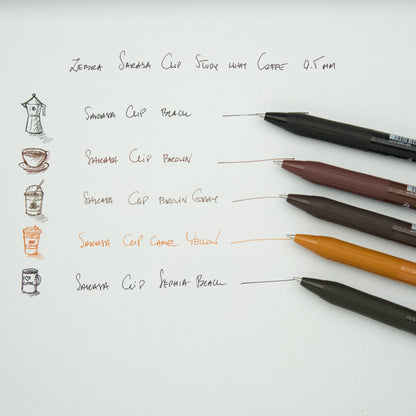 Zebra Sarasa Clip Study with Coffe 0.5 mm
Sarasa Clip Black
Sarasa Clip Brown
Sarasa Clip Brown Gray
Sarasa Clip Camel Yellow
Sarasa Clip Sephia Black